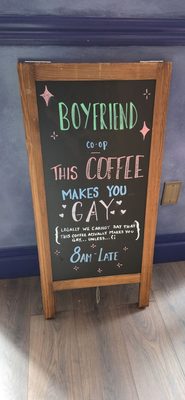 BOYFRIEND
CO-OP
THIS COFFEE
MAKES YOU
GAY
{ LEGALLY WE CANNOT SAY THAT
THIS COFFEE ACTUALLY MAKES YOU
GAY... UNLESS...? }
8AM - LATE